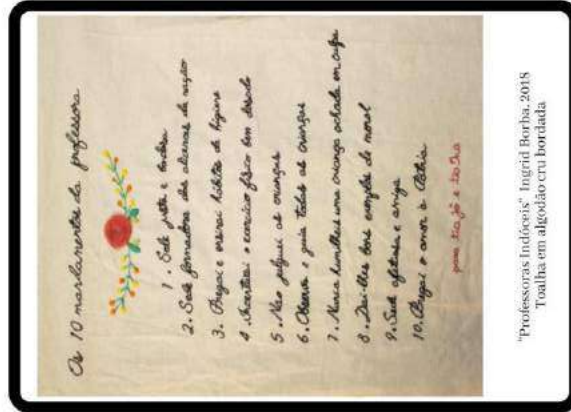 Os 10 mandamentos da professora
1. Sede justa e bondosa
2. Sede formadora dos alicerces da nação
3. Pregai e ensinai hábitos de higiene
4. Incentivai o exercício físico bem dosado
5. Não julguei as crianças
6. Observe e guia todas as crianças
7. Nunca humilheis uma criança achada em culpa
8. Dai-lhes bons exemplos de moral
9. Sede afetuosa e amiga
10. Pregai o amor à Pátria
para tia jô e
"Professoras Indóceis" Ingrid Borba, 2018
Toalha em algodão cru bordada